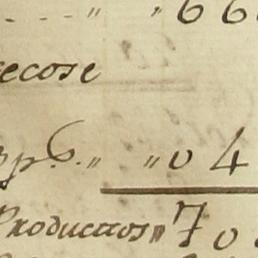 - - - " " 66
ecose
pp.s " " 0 4
Productos " 70